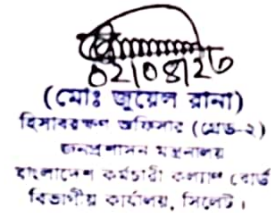 02/08/26
(মোঃ জুয়েল রানা)
হিসাবরক্ষণ অফিসার (গ্রেড-২)
জনপ্রশাসন মন্ত্রণালয়
বাংলাদেশ কর্মচারী কল্যাণ বোর্ড
বিভাগীয় কার্যালয়, সিলেট।